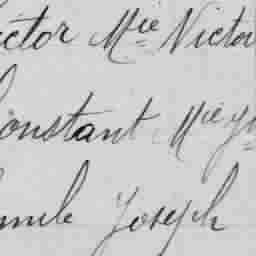 ctor Mie Victo
Constant Mie
mile Joseph